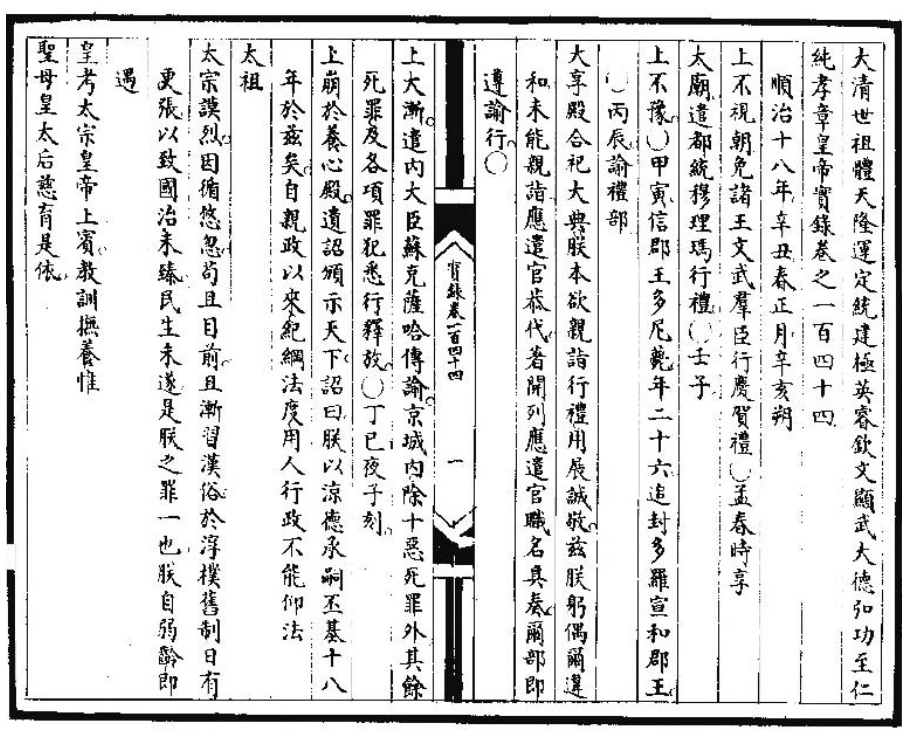 大清世祖體天隆運定統建極英睿欽文顯武大德弘功至仁
純孝章皇帝實錄卷之一百四十四
順治十八年辛丑春正月辛亥朔
上不視朝免諸王文武羣臣行慶賀禮〇孟春時享
太廟遣都統穆理瑪行禮〇壬子
上不豫〇甲寅信郡王多尼薨年二十六追封多羅宣和郡王
〇丙辰諭禮部
大享殿合祀大典朕本欲親詣行禮用展誠敬茲朕躬偶爾違
和未能親詣應遣官恭代著開列應遣官職名具奏爾部即
遵諭行〇
實錄卷一百四十四
一
上大漸遣內大臣蘇克薩哈傳諭京城內除十惡死罪外其餘
死罪及各項罪犯悉行釋放〇丁巳夜子刻
上崩於養心殿遺詔頒示天下詔曰朕以涼德承嗣丕基十八
年於茲矣自親政以來紀綱法度用人行政不能仰法
太祖
太宗謨烈因循悠忽苟且目前且漸習漢俗於淳樸舊制日有
更張以致國治未臻民生未遂是朕之罪一也朕自弱齡即
遇
皇考太宗皇帝上賓教訓撫養惟
聖母皇太后慈育是依